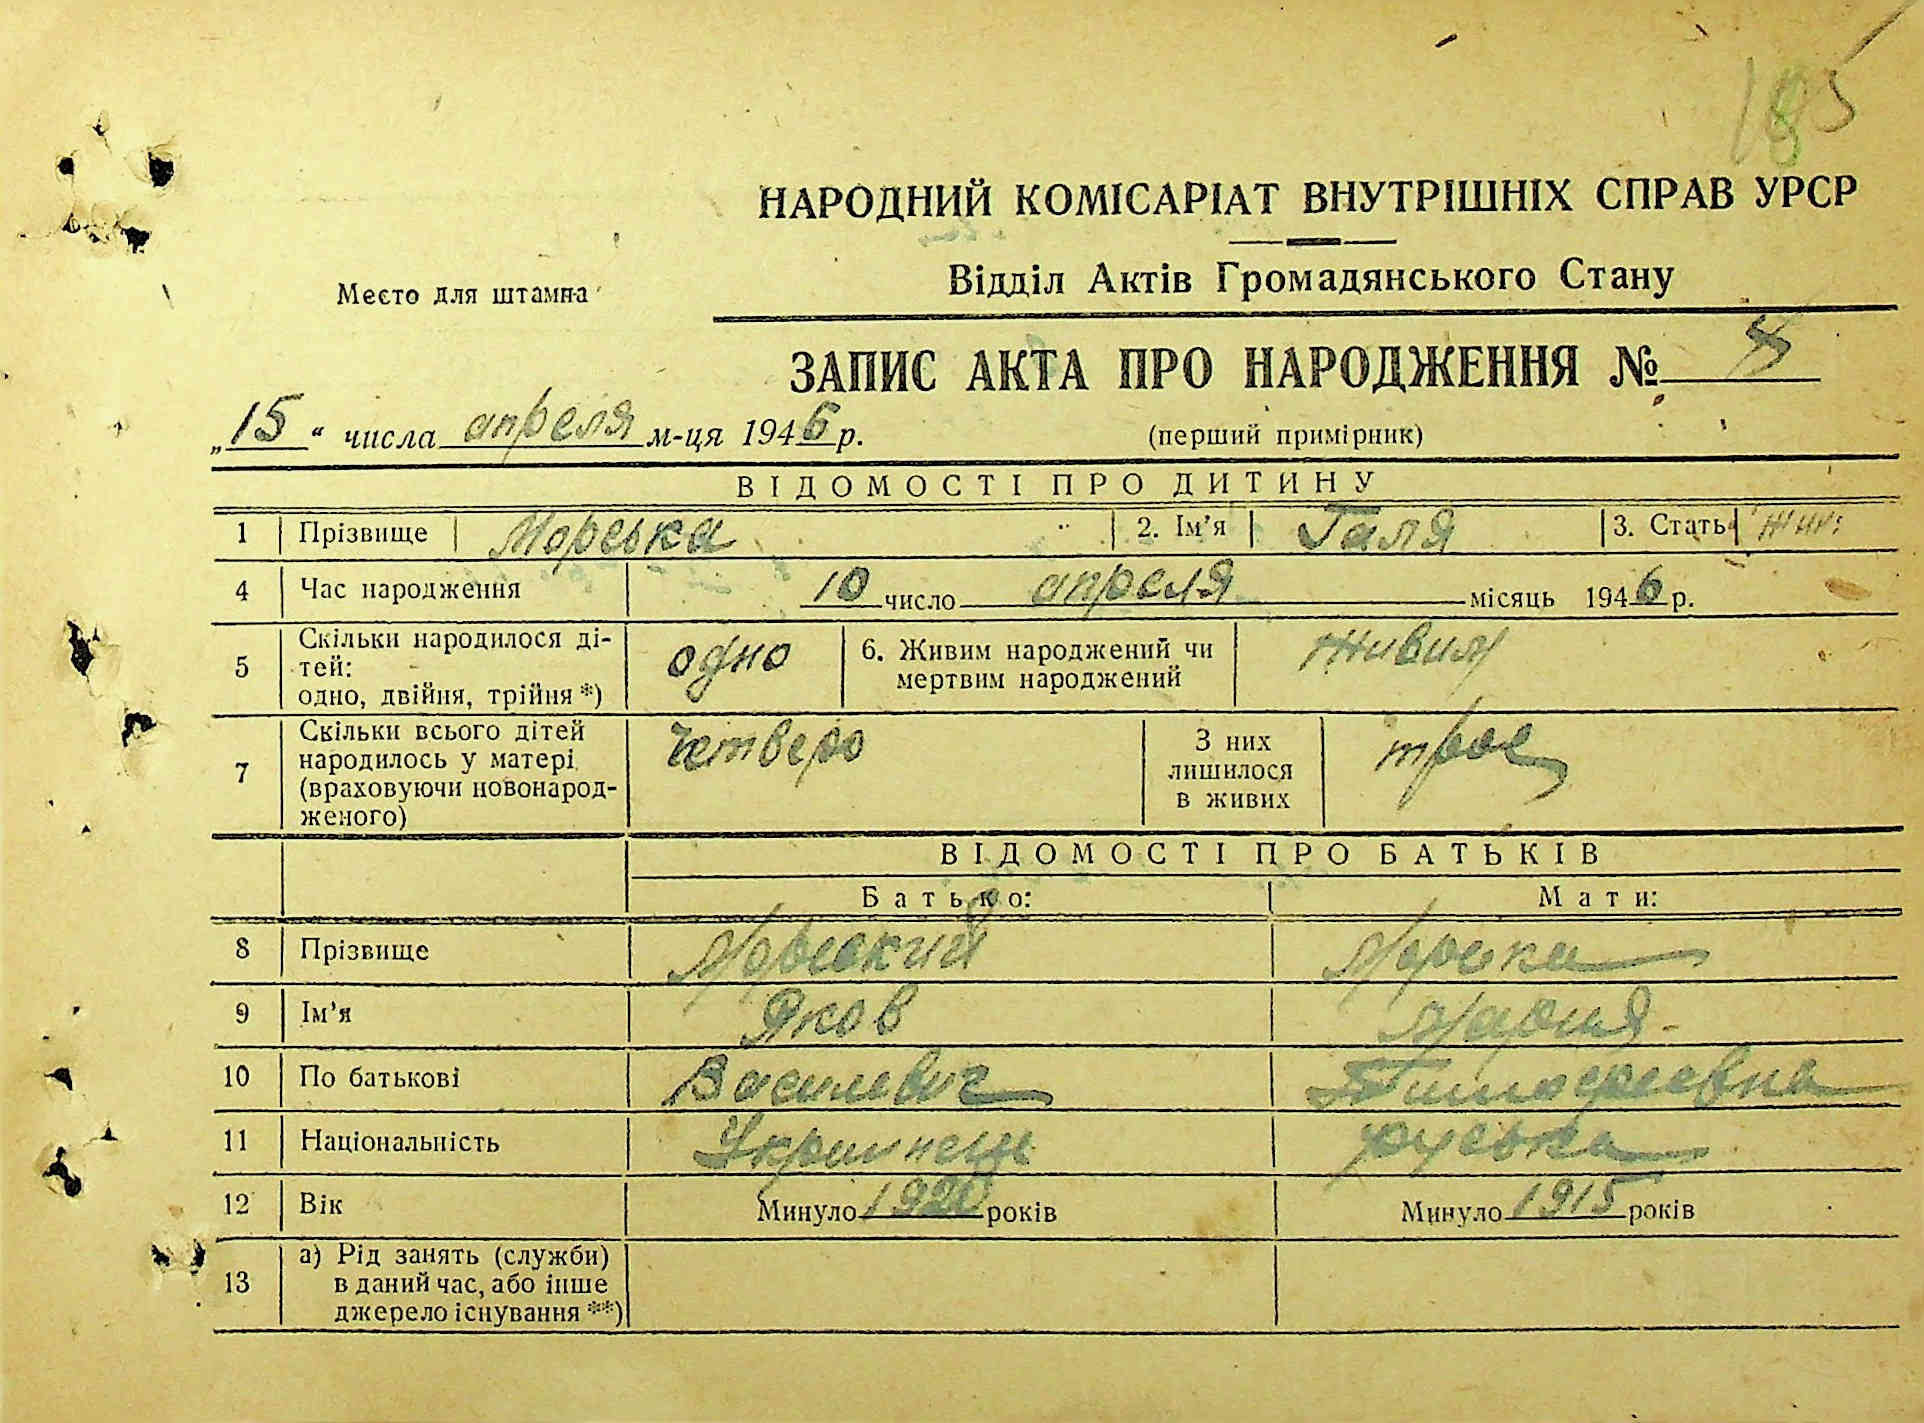 185
НАРОДНИЙ КОМІСАРІАТ ВНУТРІШНІХ СПРАВ УРСР
Відділ Актів Громадянського Стану
Место для штампа
ЗАПИС АКТА ПРО НАРОДЖЕННЯ №
„15“ числа апреля м-ця 1946 р.
(перший примірник)
ВІДОМОСТІ ПРО ДИТИНУ
1 Прізвище Морська 2. Ім'я Галя 3. Стать жин:
4 Час народження 10 число апреля місяць 1946 р.
5 Скільки народилося ді-
тей:
одно, двійня, трійня *) одно
6. Живим народжений чи
мертвим народжений живим
7 Скільки всього дітей
народилось у матері
(враховуючи новонарод-
женого) Четверо
З них
лишилося
в живих трое
ВІДОМОСТІ ПРО БАТЬКІВ
Батько: Мати:
8 Прізвище Морський Морська
9 Ім'я Яков Мария
10 По батькові Василевич Тимофеевна
11 Національність Украинець руська
12 Вік Минуло 1920 років Минуло 1915 років
13 а) Рід занять (служби)
в даний час, або інше
джерело існування **)